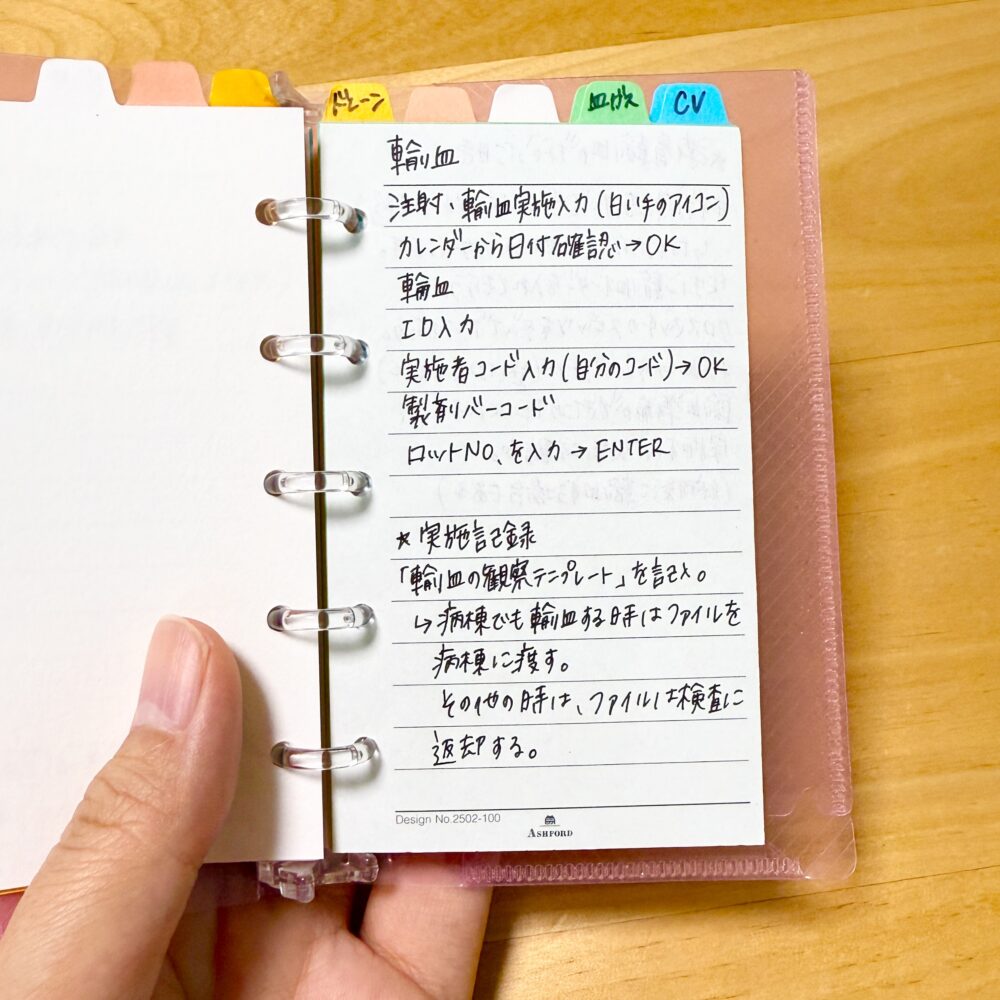 ドレーン
血ガス
CV
輸血
注射、輸血実施入力(白い手のアイコン)
カレンダーから日付確認→OK
輸血
ID入力
実施者コード入力(自分のコード)→OK
製剤バーコード
ロットNO、を入力→ENTER
★実施記録
「輸血の観察テンプレート」を記入。
↳病棟でも輸血する時はファイルを
病棟に渡す。
その他の時は、ファイルは検査に
返却する。
Design No.2502-100
ASHFORD